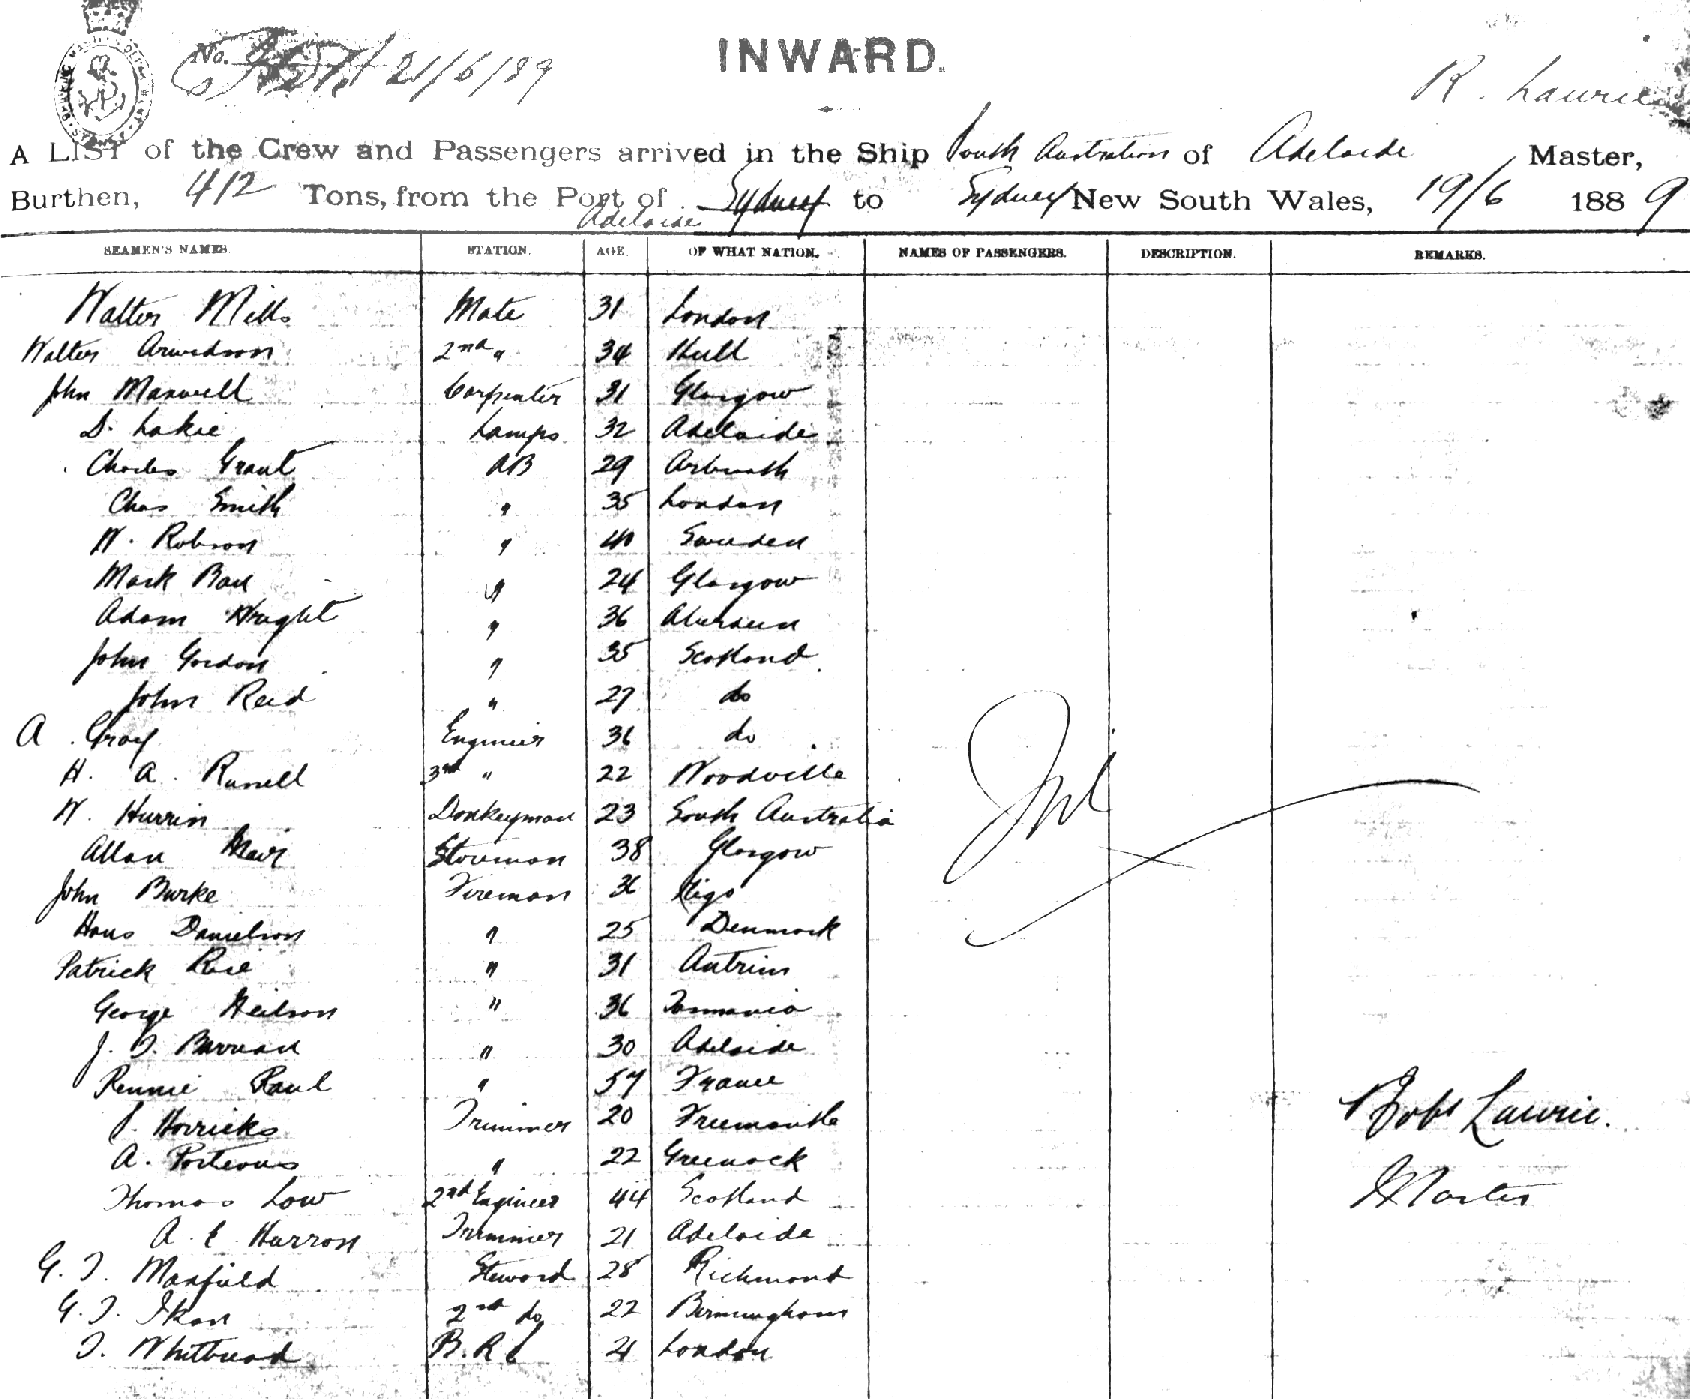 No. 21/6/89
INWARD.
R. Laurie
A LIST of the Crew and Passengers arrived in the Ship South Australian of Adelaide Master,
Burthen, 412 Tons, from the Port of Sydney Adelaide to Sydney New South Wales, 19/6 1889
SEAMEN'S NAMES. STATION. AGE. OF WHAT NATION. NAMES OF PASSENGERS. DESCRIPTION. REMARKS.
Walter Mills Mate 31 London
Walter Arwidson 2nd " 34 Hull
John Maxwell Carpenter 31 Glasgow
D. Lakie Lamps 32 Adelaide
Charles Grant AB 29 Arbroath
Chas Smith " 35 London
W. Robson " 40 Sweden
Mark " 24 Glasgow
Adam Wright " 36 Aberdeen
John Gordon " 35 Scotland
John Reid " 27 do
A. Gray Engineer 36 do
H. A. Russell 3rd " 22 Woodville
W. Hurrin Donkeyman 23 South Australia
Allan Mair Storeman 38 Glasgow
John Burke Fireman 36 Riga
Hans Danielson " 25 Denmark
Patrick Rice " 31 Antrim
George Neilson " 36 Tasmania
J. T. " 30 Adelaide
Rennie Paul " 57 France
J. Horricks Trimmer 20 Freemantle
A. Porteous " 22 Greenock
Thomas Low 2nd Engineer 44 Scotland
A. E Harron Trimmer 21 Adelaide
G. T. Maxfield Steward 28 Richmond
G. T. Ikon 2nd do 22 Birmingham
T. Whitbread B.R 21 London
Nil
Robt Laurie.
Master